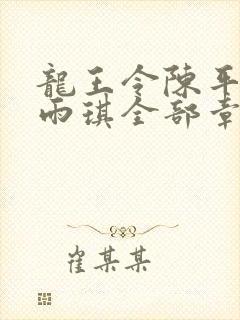 龍王令陳平
雨琪全部章
崔某某